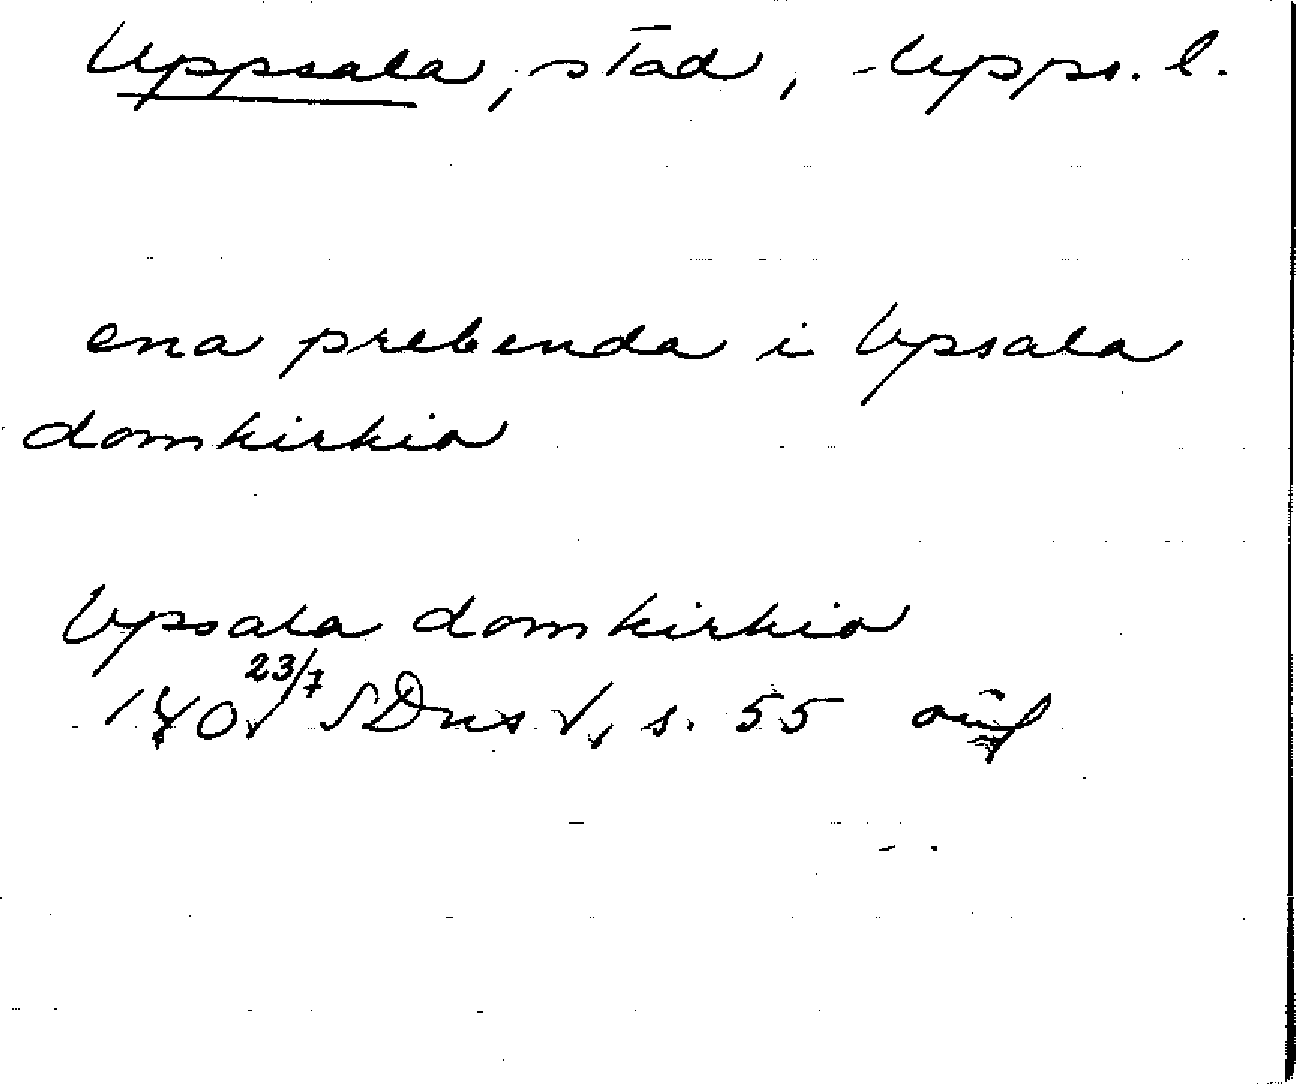 Uppsala, stad, Upps. l.
ena prebenda i Upsala
domkirkio
Upsala domkirkio
1401 23/7 SDns 1, s. 55 avf